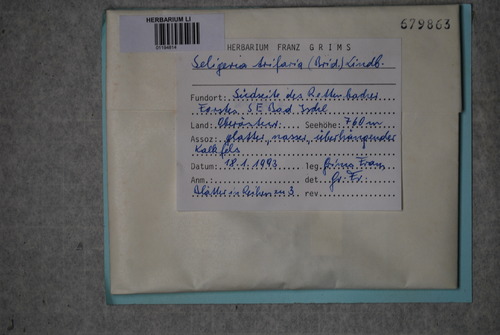 HERBARIUM LI
679863
HERBARIUM FRANZ GRIMS
Seligeria trifaria (Brid.) Lindb.
Fundort: Südseite des Rettenbaches
SE Bad Ischl
Land: Oberösterr. Seehöhe: 760 m
Assoz: glatter, nasser, überhängender
Kalkfels
Datum: 18.1.1993 leg. Grims Franz
Anm.: det. Gr. Fr.
Blätter in Reihen zu 3 rev.